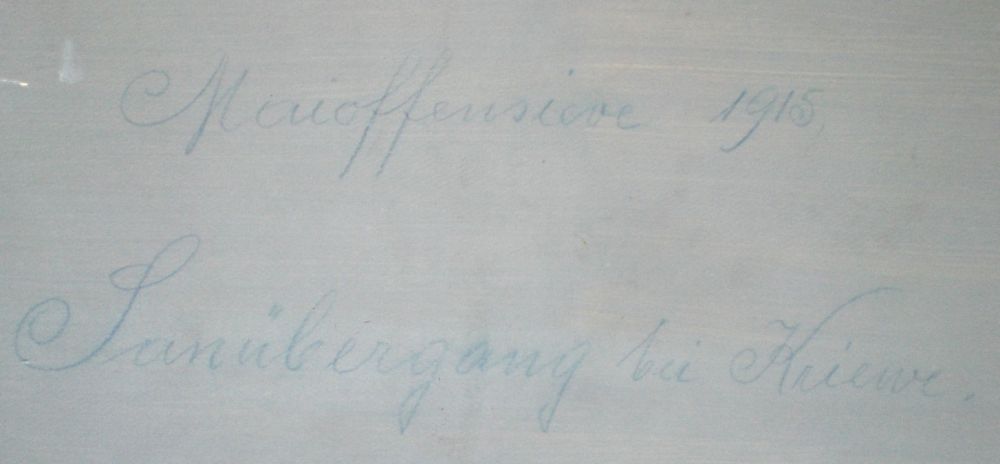 Maioffensieve 1915,
Sanübergang bei Kriewe.